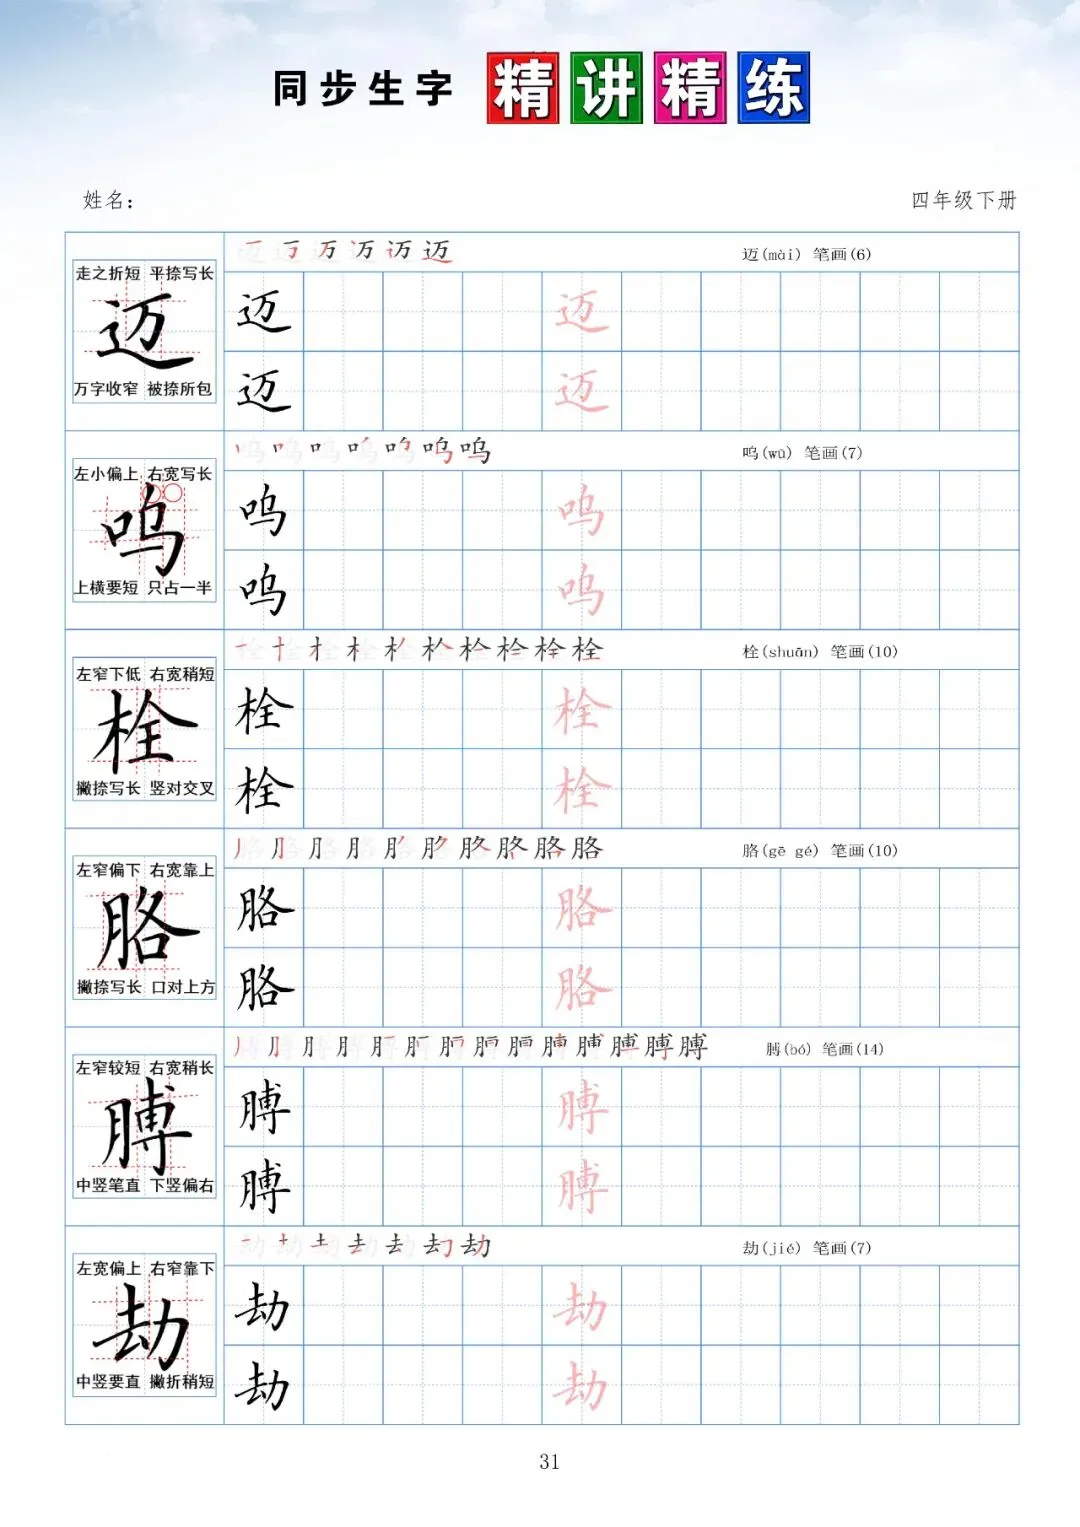 同步生字 精讲精练
姓名：
四年级下册
走之折短 平捺写长
迈
万字收窄 被捺所包
迈(mài) 笔画(6)
迈 迈
迈 迈
左小偏上 右宽写长
呜
上横要短 只占一半
呜(wū) 笔画(7)
呜 呜
呜 呜
左窄下低 右宽稍短
栓
撇捺写长 竖对交叉
栓(shuān) 笔画(10)
栓 栓
栓 栓
左窄偏下 右宽靠上
胳
撇捺写长 口对上方
胳(gē gé) 笔画(10)
胳 胳
胳 胳
左窄较短 右宽稍长
膊
中竖笔直 下竖偏右
膊(bó) 笔画(14)
膊 膊
膊 膊
左宽偏上 右窄靠下
劫
中竖要直 撇折稍短
劫(jié) 笔画(7)
劫 劫
劫 劫
31